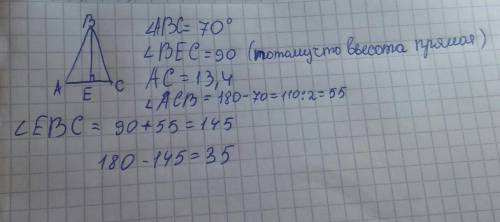 B
A
E
C
∠ABC = 70°
∠BEC = 90 (потамушто высота прямая)
AC = 13,4
∠ACB = 180-70=110:2=55
∠EBC = 90+55=145
180-145=35